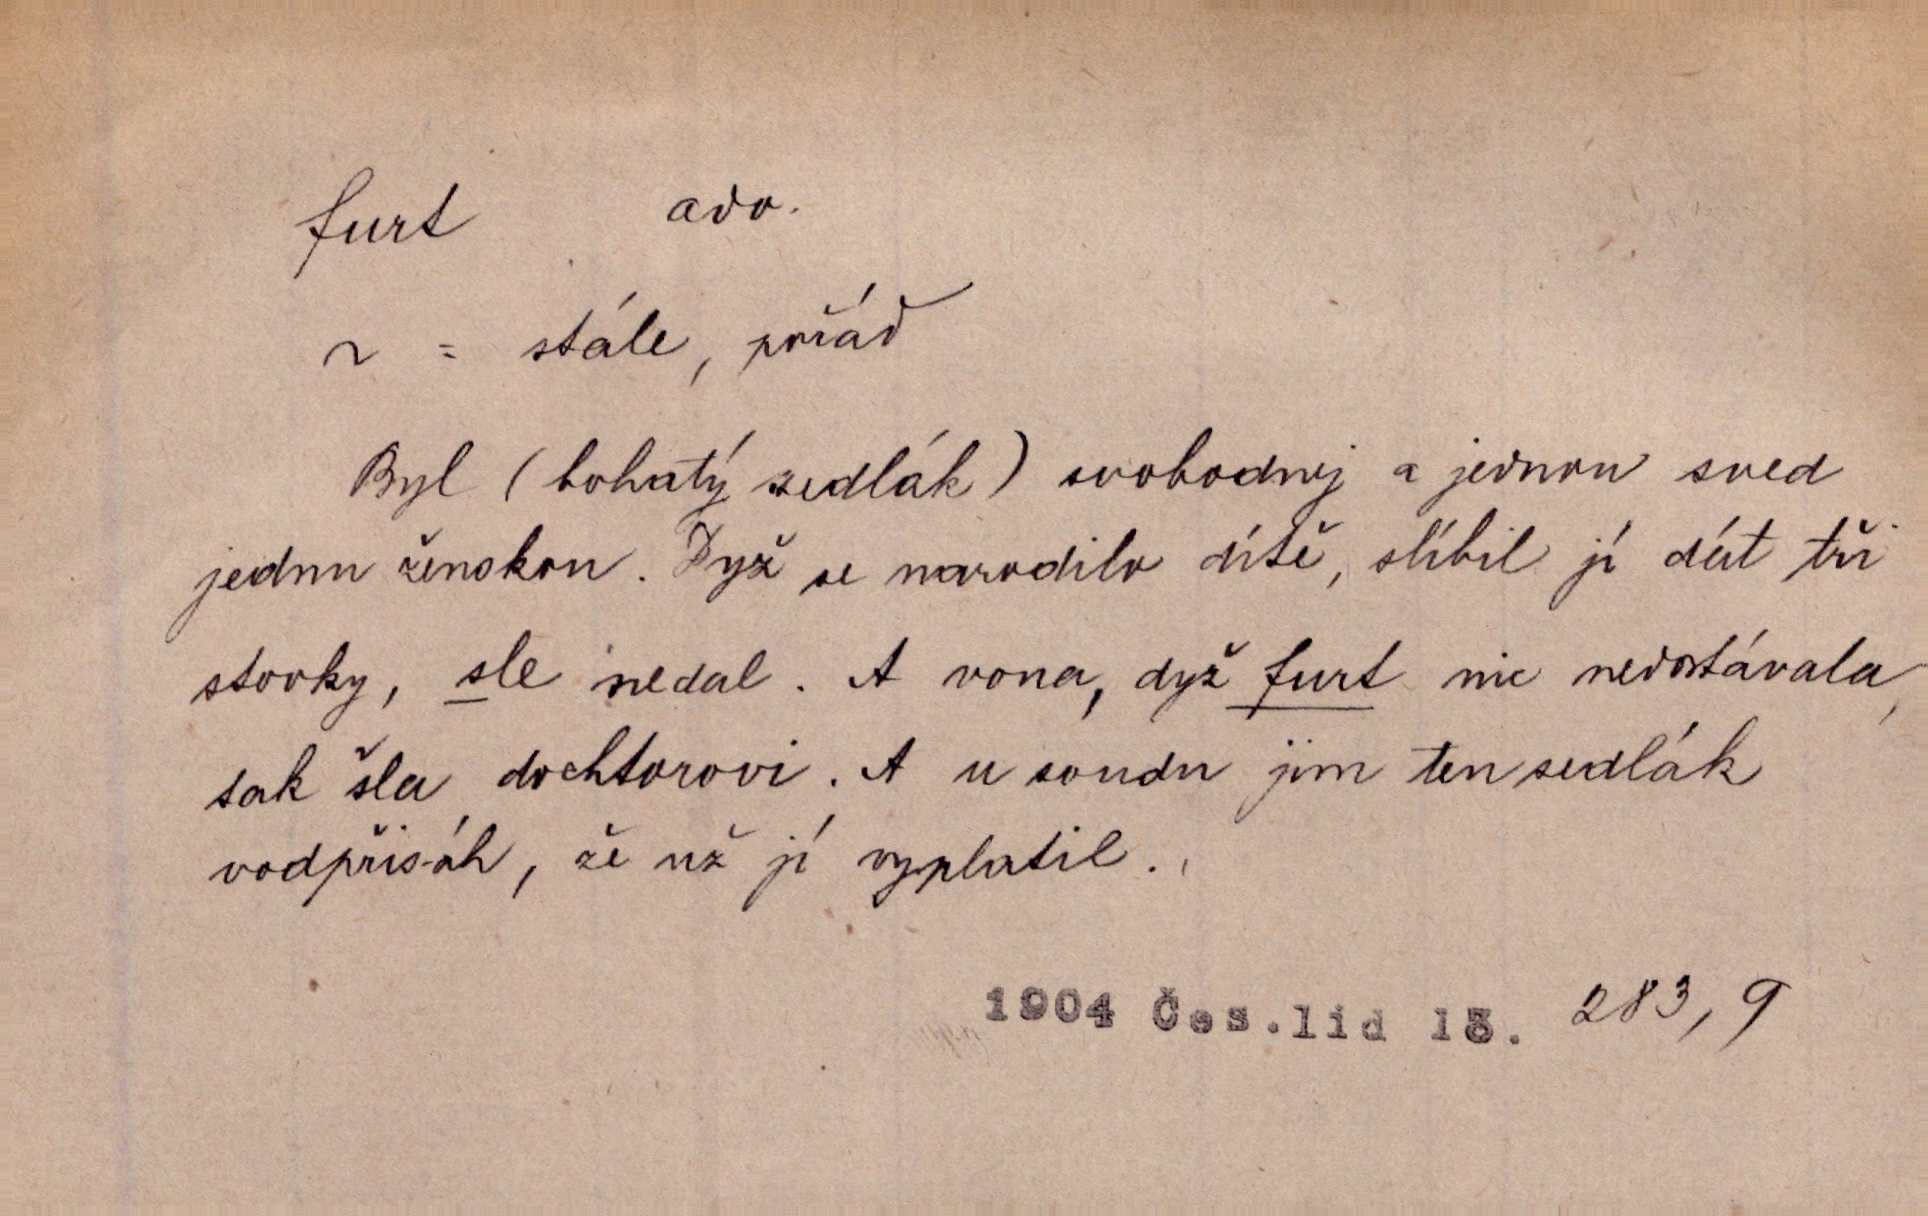 furt adv.
~ = stále, pořád
Byl (bohatý sedlák) svobodnej a jednou sved
jednu ženskou. Dyž se narodilo dítě, slíbil jí dát tři
stovky, sle nedal. A vona, dyž furt nic nedostávala,
tak šla dochtorovi. A u soudu jim ten sedlák
vodpřisáh, že už jí vyplatil.
1904 Čes.lid 13. 283, 9